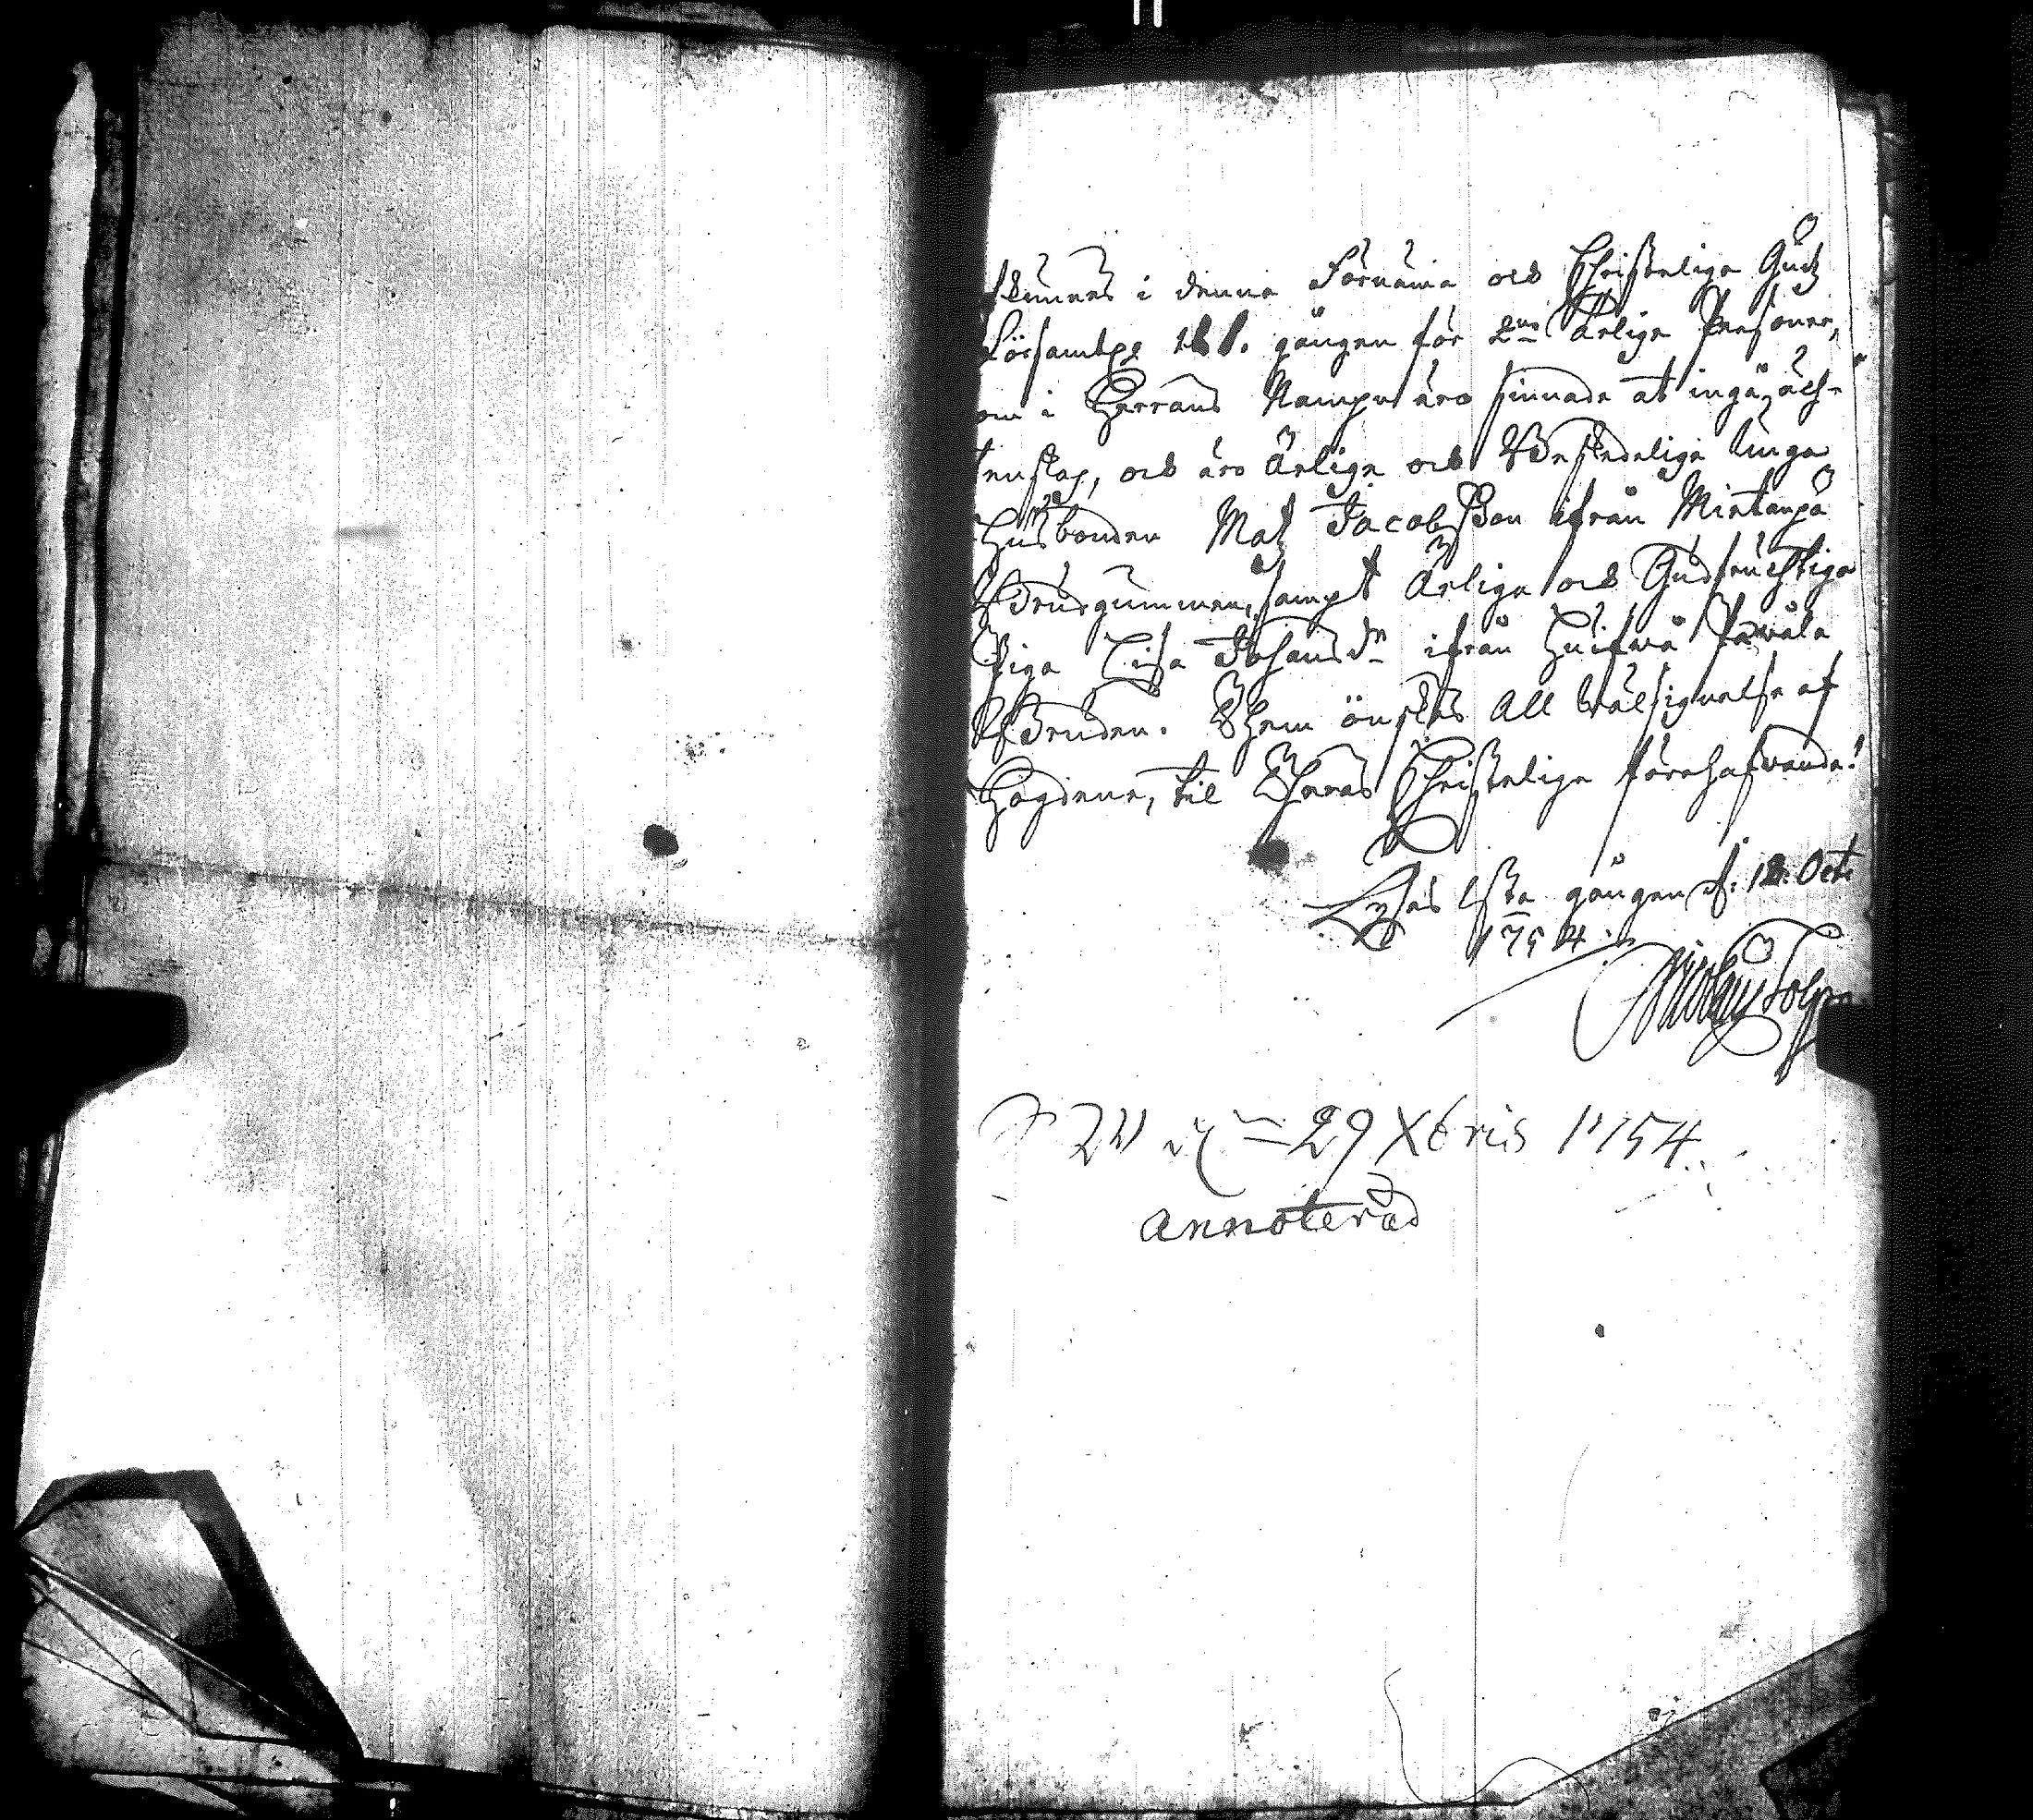 kunnes i denna Förnäma och Christeliga Gudz
Församlg 1st. gången för 2ne Ärlige Personer,
om i Herrans Nampn äro sinnade at ingå ächtenskap, och äro Ärlige och Beskedelige Unga
Husbonden Mat Jacobsson ifrån Mietanpä
Brudgummen, sampt Ärliga och Gudfruchtiga
Piga Lisa Johansdr ifrån Huifwa Pavala
Bruden. Them önskas All Wälsignelse af
Högdene, til Theras Christeliga förehafwande!
Lyses 1sta gången d. 12. Oct.
1754.
29 Xbris 1754
annoterad